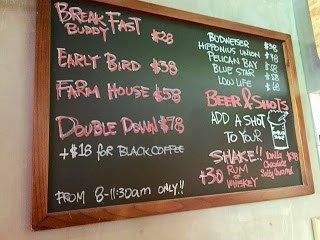 BREAK FAST
BUDDY $28
EARLY BIRD $38
FARM HOUSE $58
DOUBLE DOWN $78
+$18 FOR BLACK COFFEE
FROM 8-11:30am ONLY!!
BUDWEISER $38
HIPPONIUS UNION $48
PELICAN BAY $58
BLUE STAR $58
LOW LIFE $68
BEER & SHOTS
ADD A SHOT
TO YOUR
SHAKE!!
+30 RUM
OR
WHISKEY
Vanilla $78
Chocolate
Salty Caramel